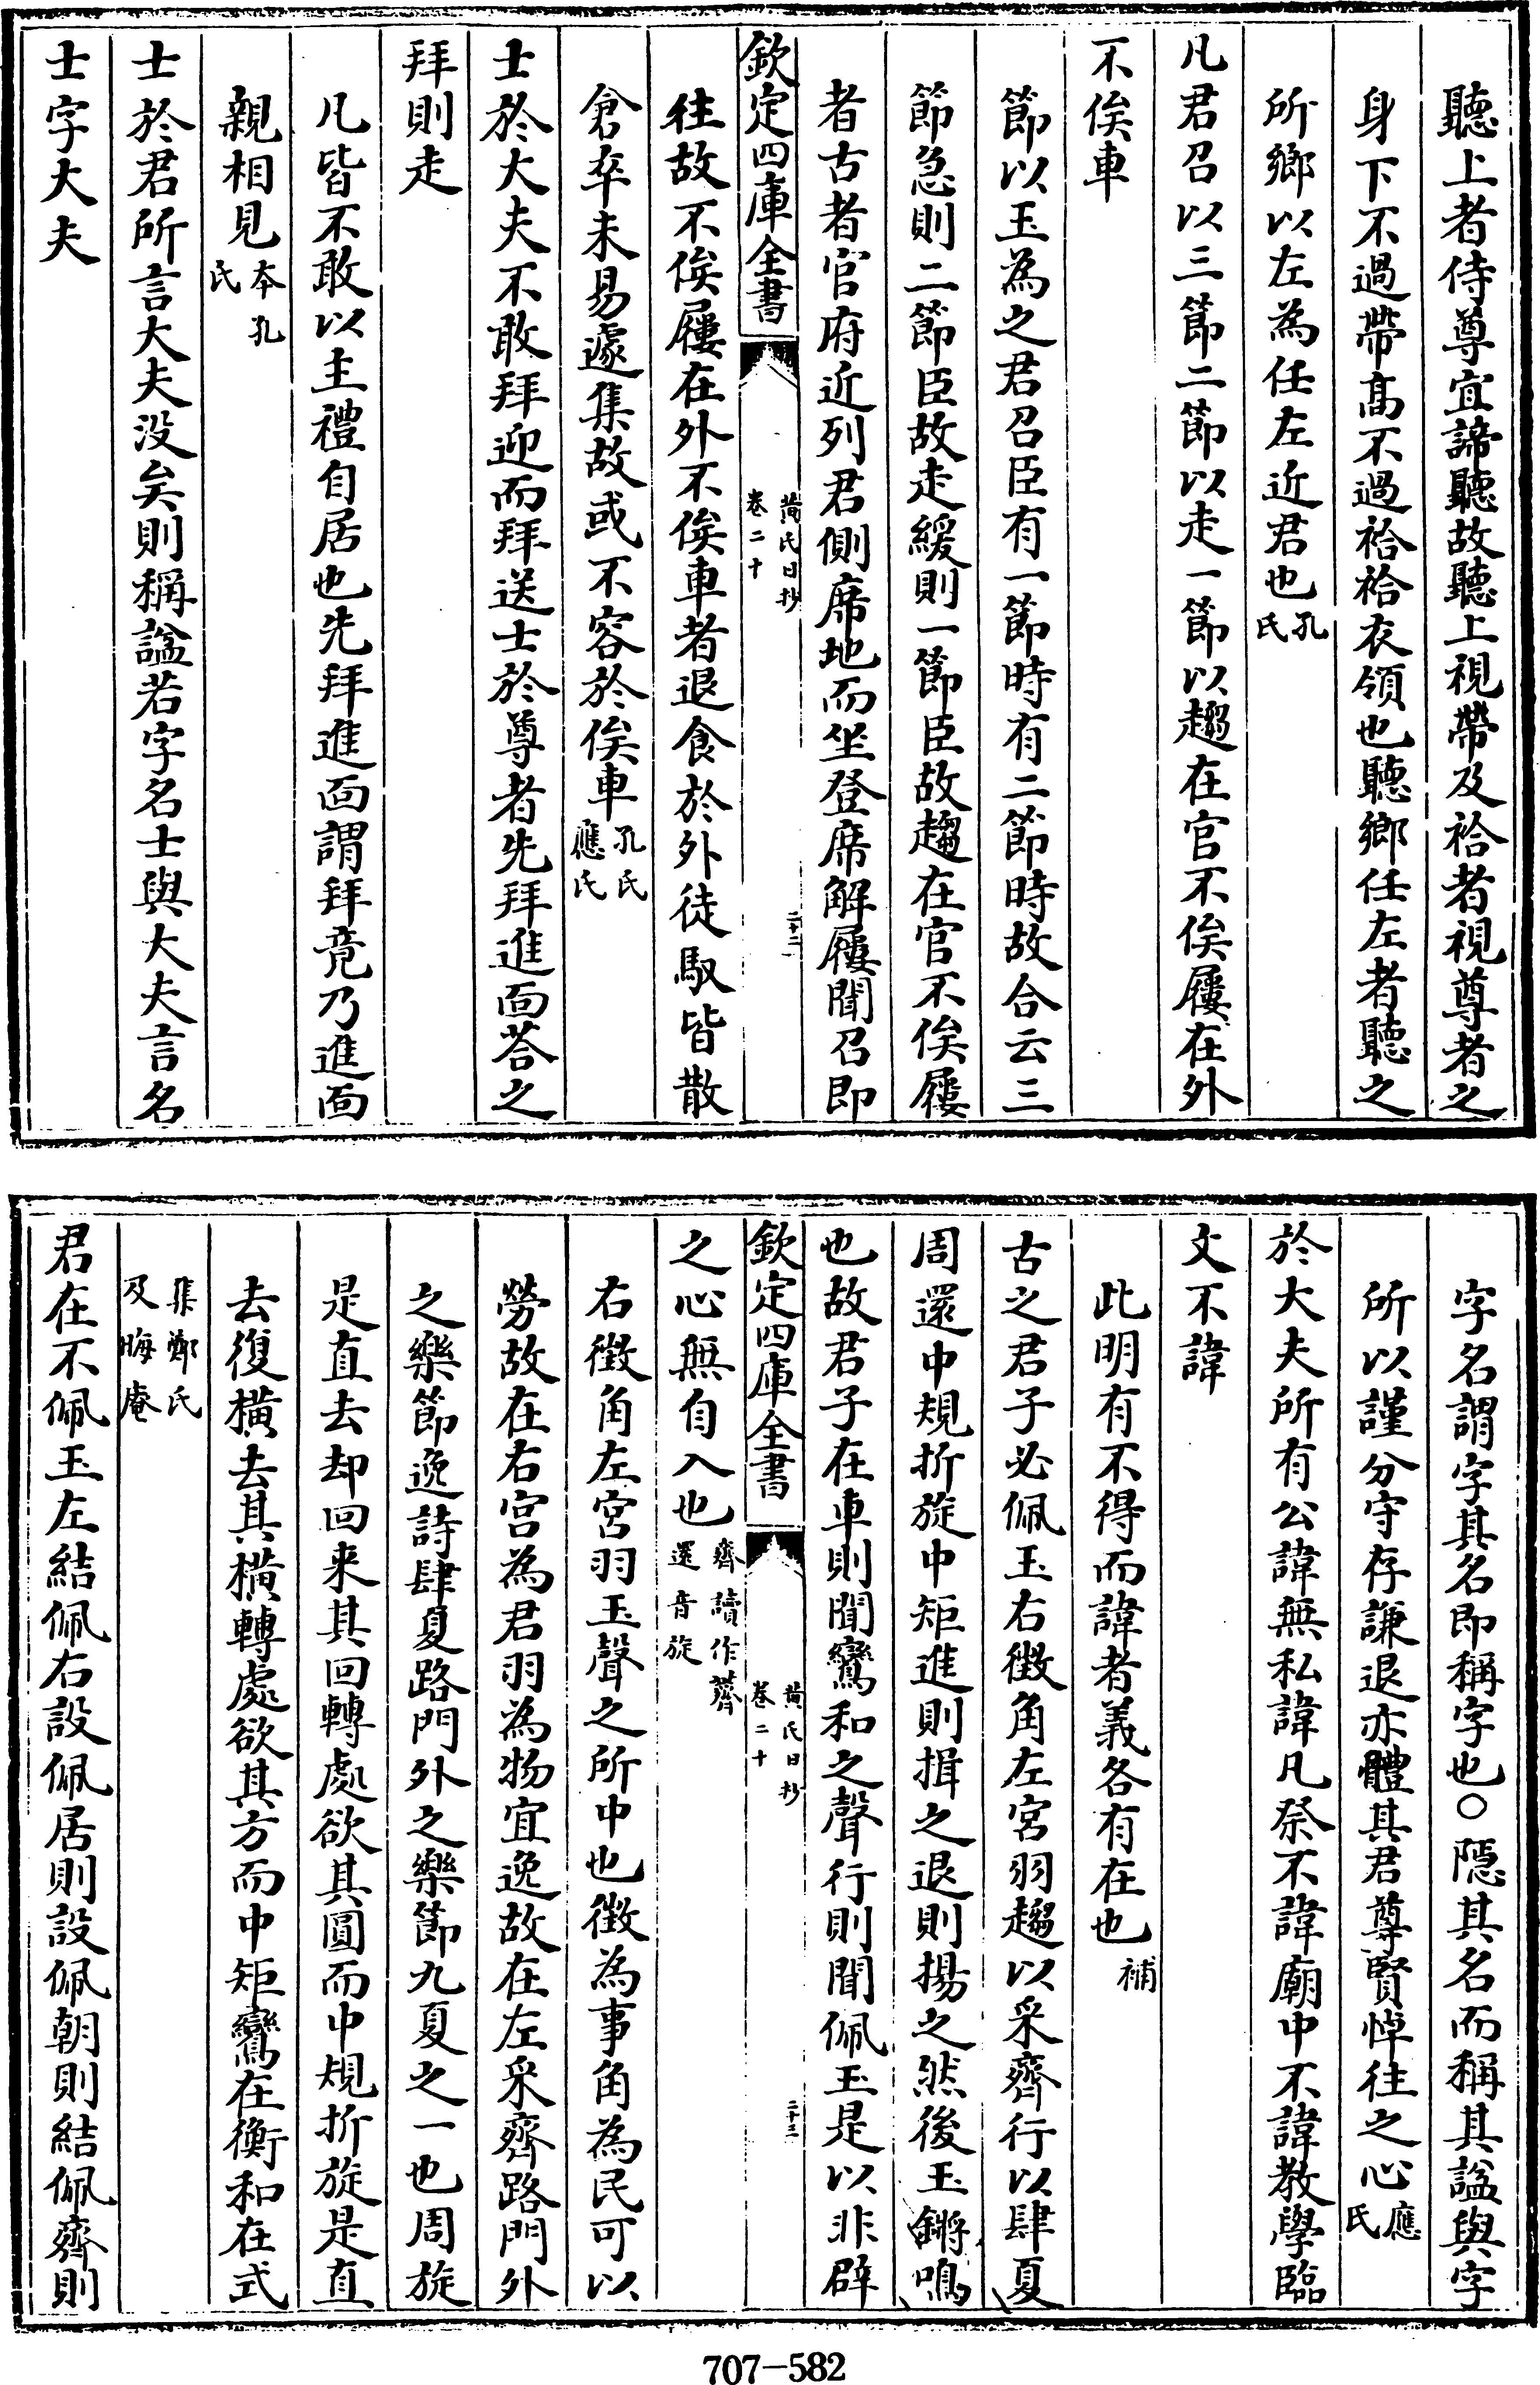 聽上者侍尊宜諦聽故聽上視帶及袷者視尊者之
身下不過帶髙不過袷袷衣領也聽鄉任左者聽之
所鄉以左為任左近君也孔氏
凡君召以三節二節以走一節以趨在官不俟屨在外
不俟車
節以玉為之君召臣有一節時有二節時故合云三
節急則二節臣故走緩則一節臣故趨在官不俟屨
者古者官府近列君側席地而坐登席解屨聞召即
欽定四庫全書
黄氏日抄
卷二十
二十二
往故不俟屨在外不俟車者退食於外徒馭皆散
倉卒未易遽集故或不容於俟車孔氏應氏
士於大夫不敢拜迎而拜送士於尊者先拜進面荅之
拜則走
凡皆不敢以主禮自居也先拜進面謂拜竟乃進面
親相見本孔氏
士於君所言大夫没矣則稱謚若字名士與大夫言名
士字大夫
字名謂字其名即稱字也○隠其名而稱其謚與字
所以謹分守存謙退亦體其君尊賢悼往之心應氏
於大夫所有公諱無私諱凡祭不諱廟中不諱教學臨
文不諱
此明有不得而諱者義各有在也補
古之君子必佩玉右徴角左宮羽趨以采齊行以肆夏
周還中規折旋中矩進則揖之退則揚之然後玉鏘鳴
也故君子在車則聞鸞和之聲行則聞佩玉是以非辟
欽定四庫全書
黄氏日抄
卷二十
二十三
之心無自入也齊讀作薺還音旋
右徴角左宮羽玉聲之所中也徴為事角為民可以
勞故在右宮為君羽為物宜逸故在左采齊路門外
之樂節逸詩肆夏路門外之樂節九夏之一也周旋
是直去却回来其回轉處欲其圓而中規折旋是直
去復橫去其橫轉處欲其方而中矩鸞在衡和在式
集鄭氏及晦庵
君在不佩玉左結佩右設佩居則設佩朝則結佩齊則
707-582